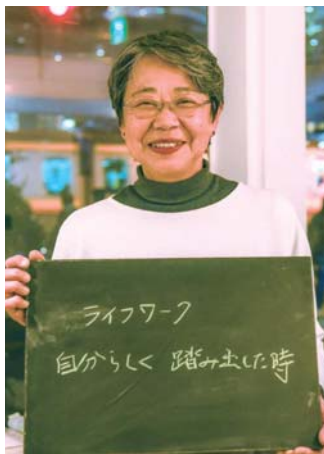 ライフワーク
自分らしく 踏み出した時